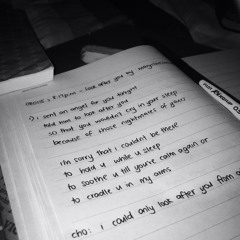 look after you by
I sent an angel for you tonight
told him to look after you
so that you wouldn't cry in your sleep
because of those nightmares of yours
i'm sorry that i couldn't be there
to hold u while u sleep
to soothe u till you're calm again or
to cradle u in my arms
cho: i could only look after you from a